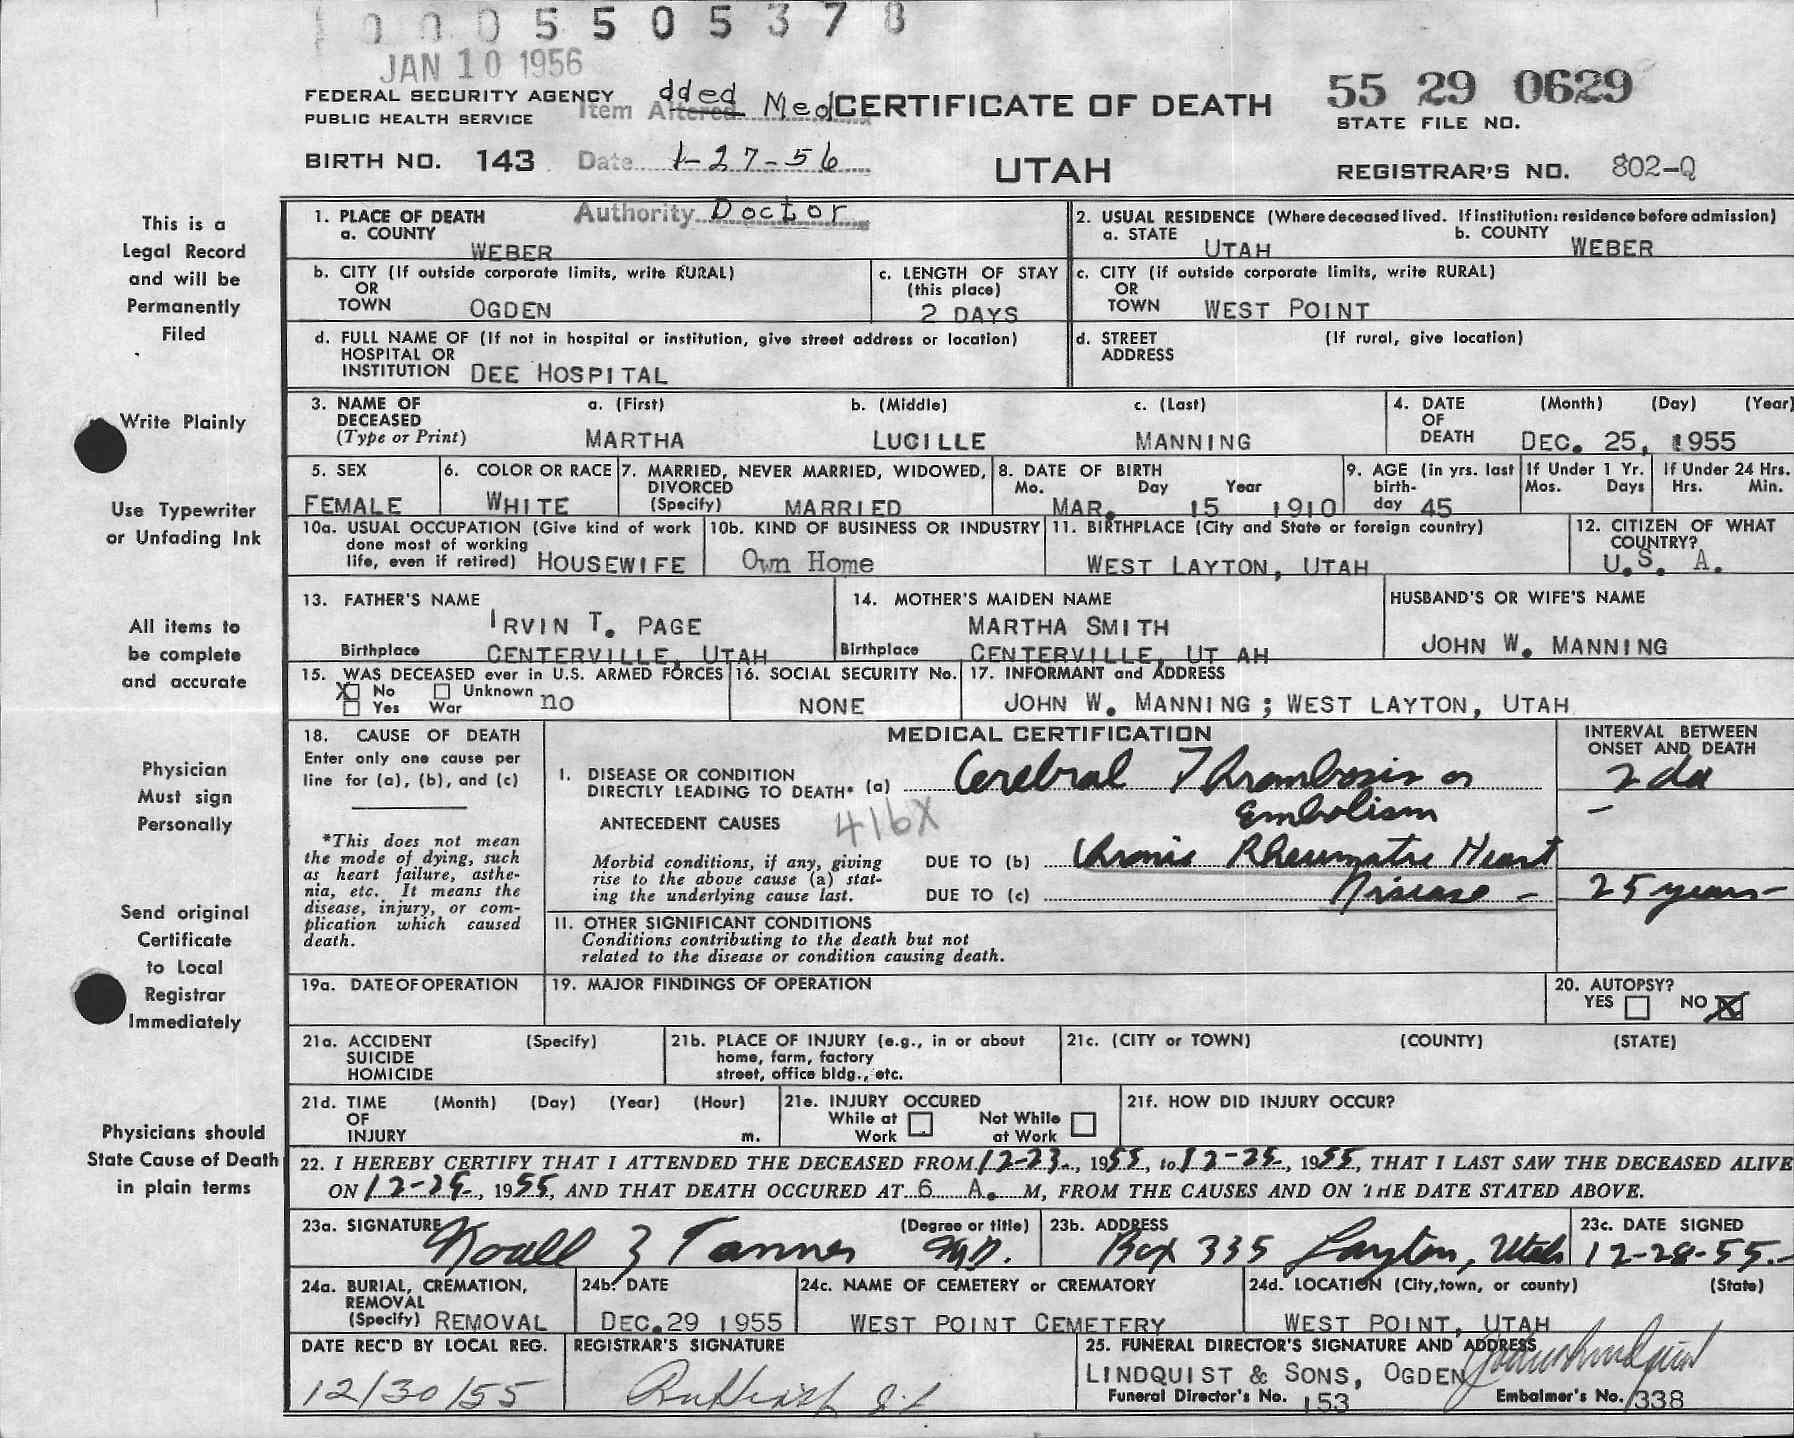 0 0 0 5 5 0 5 3 7 8
JAN 10 1956
FEDERAL SECURITY AGENCY
PUBLIC HEALTH SERVICE
Item Altered dded Med
CERTIFICATE OF DEATH
55 29 0629
STATE FILE NO.
BIRTH NO. 143
Date 1-27-56
UTAH
REGISTRAR'S NO. 802-Q
Authority Doctor
This is a
Legal Record
and will be
Permanently
Filed
Write Plainly
Use Typewriter
or Unfading Ink
All items to
be complete
and accurate
Physician
Must sign
Personally
Send original
Certificate
to Local
Registrar
Immediately
Physicians should
State Cause of Death
in plain terms
1. PLACE OF DEATH
a. COUNTY
WEBER
2. USUAL RESIDENCE (Where deceased lived. If institution: residence before admission)
a. STATE UTAH b. COUNTY WEBER
b. CITY (If outside corporate limits, write RURAL)
OR
TOWN OGDEN
c. LENGTH OF STAY
(this place)
2 DAYS
c. CITY (if outside corporate limits, write RURAL)
OR
TOWN WEST POINT
d. FULL NAME OF (If not in hospital or institution, give street address or location)
HOSPITAL OR
INSTITUTION DEE HOSPITAL
d. STREET (If rural, give location)
ADDRESS
3. NAME OF a. (First) b. (Middle) c. (Last)
DECEASED
(Type or Print) MARTHA LUCILLE MANNING
4. DATE (Month) (Day) (Year)
OF
DEATH DEC. 25, 1955
5. SEX
FEMALE
6. COLOR OR RACE
WHITE
7. MARRIED, NEVER MARRIED, WIDOWED,
DIVORCED
(Specify) MARRIED
8. DATE OF BIRTH
Mo. Day Year
MAR. 15 1910
9. AGE (in yrs. last
birth-
day 45
If Under 1 Yr.
Mos. Days
If Under 24 Hrs.
Hrs. Min.
10a. USUAL OCCUPATION (Give kind of work
done most of working
life, even if retired) HOUSEWIFE
10b. KIND OF BUSINESS OR INDUSTRY
Own Home
11. BIRTHPLACE (City and State or foreign country)
WEST LAYTON, UTAH
12. CITIZEN OF WHAT
COUNTRY?
U.S. A.
13. FATHER'S NAME
IRVIN T. PAGE
Birthplace CENTERVILLE, UTAH
14. MOTHER'S MAIDEN NAME
MARTHA SMITH
Birthplace CENTERVILLE, UT AH
HUSBAND'S OR WIFE'S NAME
JOHN W. MANNING
15. WAS DECEASED ever in U.S. ARMED FORCES
X No Unknown no
Yes War
16. SOCIAL SECURITY No.
NONE
17. INFORMANT and ADDRESS
JOHN W. MANNING; WEST LAYTON, UTAH
18. CAUSE OF DEATH
Enter only one cause per
line for (a), (b), and (c)
*This does not mean
the mode of dying, such
as heart failure, asthe-
nia, etc. It means the
disease, injury, or com-
plication which caused
death.
MEDICAL CERTIFICATION
INTERVAL BETWEEN
ONSET AND DEATH
I. DISEASE OR CONDITION
DIRECTLY LEADING TO DEATH* (a) Cerebral Thrombosis or 2 da
Embolism –
ANTECEDENT CAUSES 416X
Morbid conditions, if any, giving
rise to the above cause (a) stat-
ing the underlying cause last.
DUE TO (b) Chronic Rheumatic Heart
DUE TO (c) Disease – 25 years –
II. OTHER SIGNIFICANT CONDITIONS
Conditions contributing to the death but not
related to the disease or condition causing death.
19a. DATE OF OPERATION
19. MAJOR FINDINGS OF OPERATION
20. AUTOPSY?
YES NO X
21a. ACCIDENT (Specify)
SUICIDE
HOMICIDE
21b. PLACE OF INJURY (e.g., in or about
home, farm, factory
street, office bldg., etc.
21c. (CITY or TOWN) (COUNTY) (STATE)
21d. TIME (Month) (Day) (Year) (Hour)
OF
INJURY m.
21e. INJURY OCCURED
While at Not While
Work at Work
21f. HOW DID INJURY OCCUR?
22. I HEREBY CERTIFY THAT I ATTENDED THE DECEASED FROM 12-23, 1955, to 12-25, 1955, THAT I LAST SAW THE DECEASED ALIVE
ON 12-25, 1955, AND THAT DEATH OCCURED AT 6 A. M, FROM THE CAUSES AND ON THE DATE STATED ABOVE.
23a. SIGNATURE (Degree or title)
Noall Z Tanner M.D.
23b. ADDRESS
Box 335 Layton, Utah
23c. DATE SIGNED
12-28-55.-
24a. BURIAL, CREMATION,
REMOVAL
(Specify) REMOVAL
24b. DATE
DEC.29 1955
24c. NAME OF CEMETERY or CREMATORY
WEST POINT CEMETERY
24d. LOCATION (City,town, or county) (State)
WEST POINT, UTAH
DATE REC'D BY LOCAL REG.
12/30/55
REGISTRAR'S SIGNATURE
25. FUNERAL DIRECTOR'S SIGNATURE AND ADDRESS
LINDQUIST & SONS, OGDEN
Funeral Director's No. 153 Embalmer's No. 338